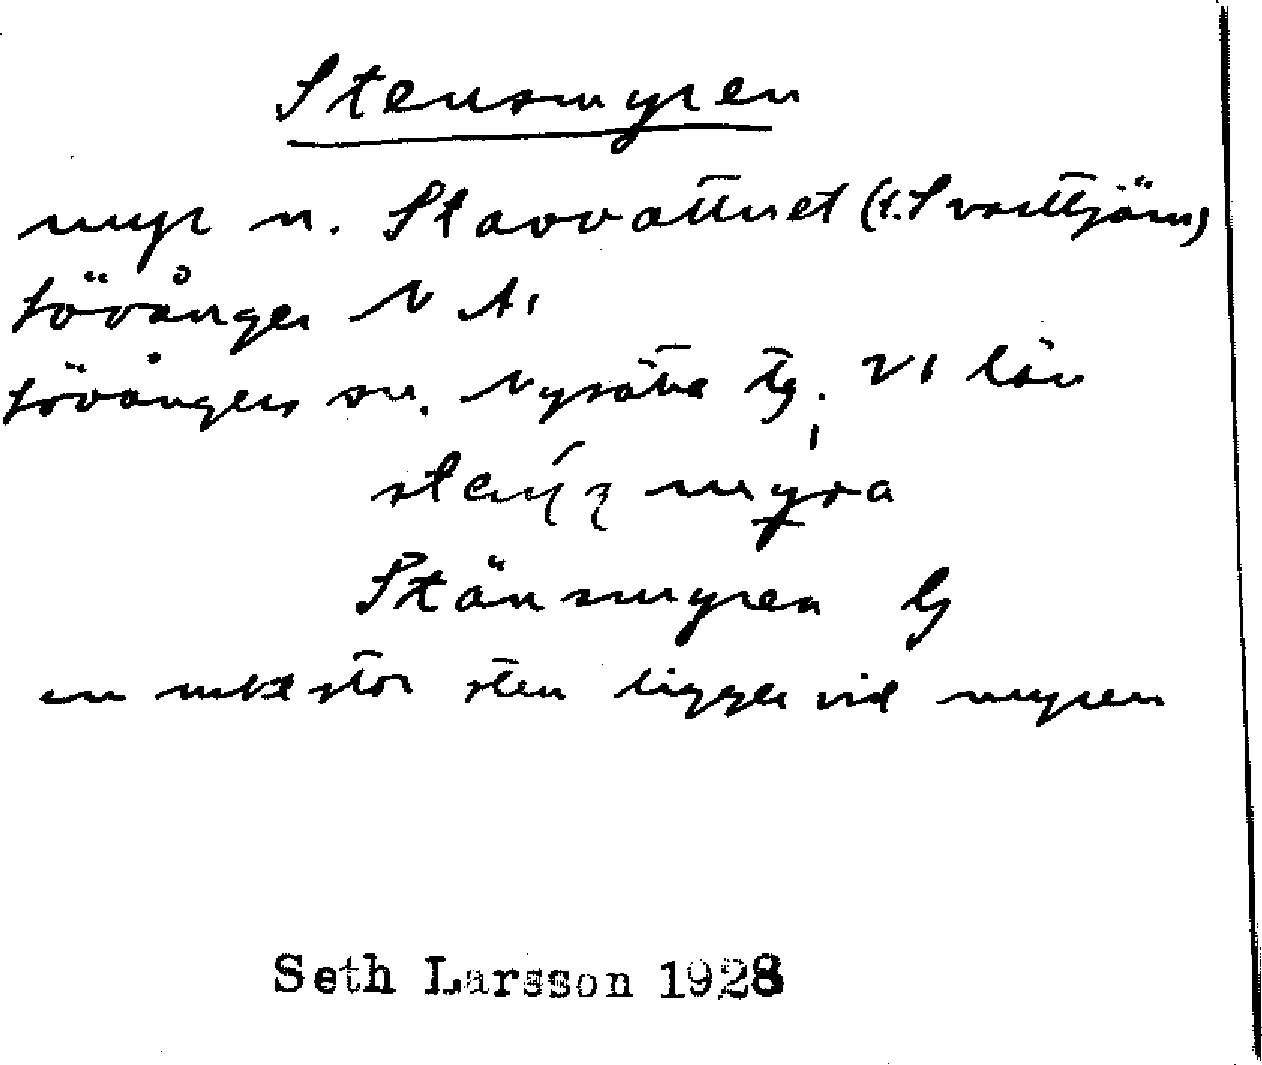 Stensmyren
myr n. Stavvattnet (t. Svarttjärn)
Lövånger N A.
Lövångers sn. Nysätra tg. Vb län
myra
Stänsmyren G
en mkt stor sten ligger vid myren
Seth Larsson 1928